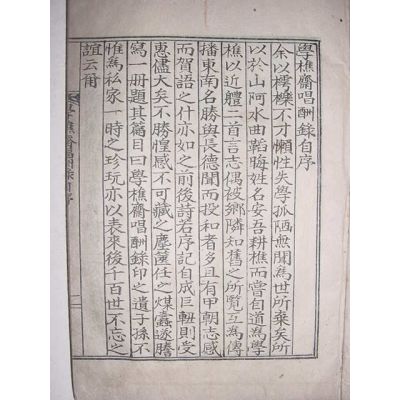 學樵齋唱酬錄自序
余以樗櫟不才懶性失學孤陋無聞爲世所棄矣所
以於山阿水曲韜晦姓名安吾耕樵而嘗自道爲學
樵以近體二首言志偶被鄉隣知舊之所覽互爲傳
播東南名勝與長德聞而授和者多且有甲朝志感
而賀語之什亦如之前後詩若序記自成巨軸則受
惠儘大矣不勝惶感不可藏之塵篋任之煤蠹遂謄
寫一冊題其篇目曰學樵齋唱酬錄印之遺子孫不
惟爲私家一時之珍玩亦以表來後千百世不忘之
誼云爾
學樵齋唱酬錄自序 一